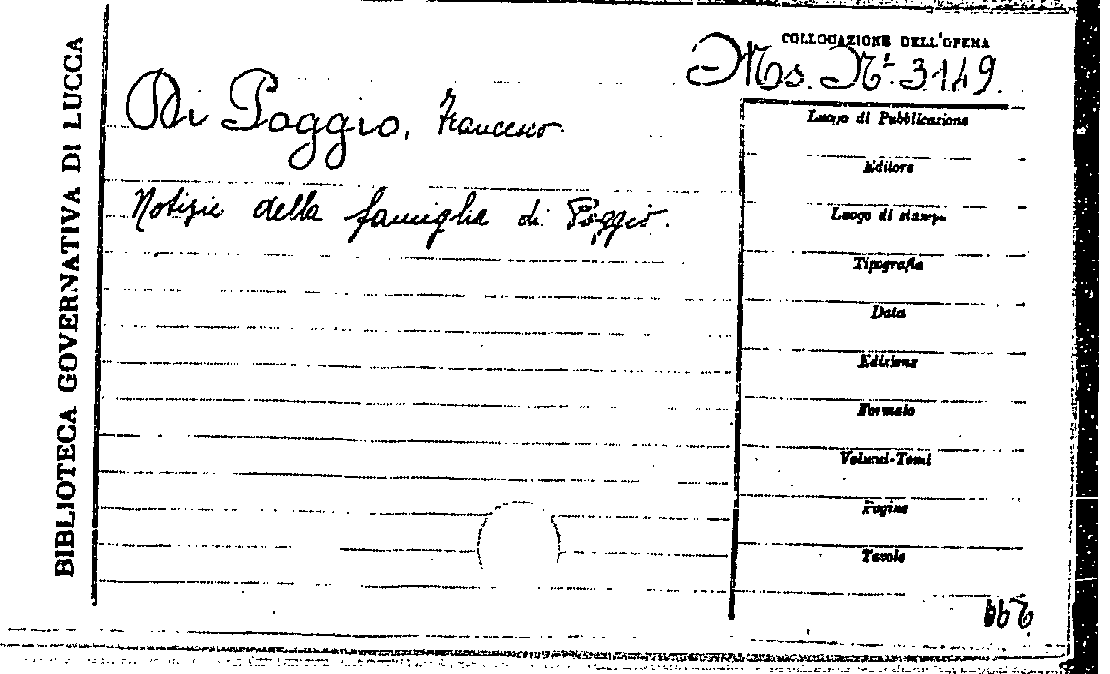 BIBLIOTECA GOVERNATIVA DI LUCCA
COLLOCAZIONE DELL'OPERA
Ms. Nº. 3149.
Di Poggio, Francesco.
Notizie della famiglia di Poggio.
Luogo di Pubblicazione
Editore
Luogo di stampa
Tipografia
Data
Edizione
Formato
Volumi-Tomi
Pagine
Tavole